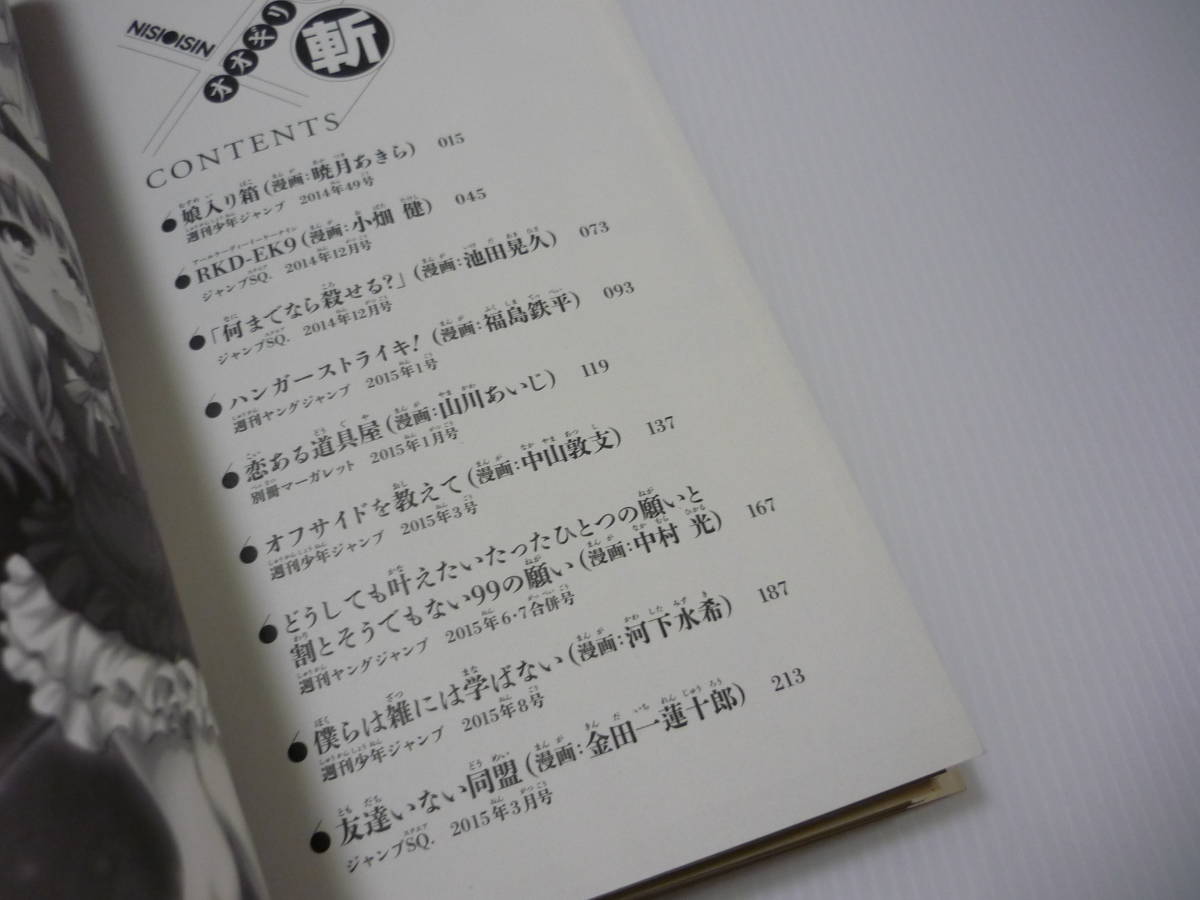 NISIOISIN
オオギリ
斬
CONTENTS
娘入り箱(漫画:暁月あきら) 015
週刊少年ジャンプ 2014年49号
RKD-EK9(漫画:小畑 健) 045
ジャンプSQ. 2014年12月号
「何までなら殺せる?」(漫画:池田晃久) 073
ジャンプSQ. 2014年12月号
ハンガーストライキ!(漫画:福島鉄平) 093
週刊ヤングジャンプ 2015年1号
恋ある道具屋(漫画:山川あいじ) 119
別冊マーガレット 2015年1月号
オフサイドを教えて(漫画:中山敦支) 137
週刊少年ジャンプ 2015年3号
どうしても叶えたいたったひとつの願いと
割とそうでもない99の願い(漫画:中村 光) 167
週刊ヤングジャンプ 2015年6・7合併号
僕らは雑には学ばない(漫画:河下水希) 187
週刊少年ジャンプ 2015年8号
友達いない同盟(漫画:金田一蓮十郎) 213
ジャンプSQ. 2015年3月号